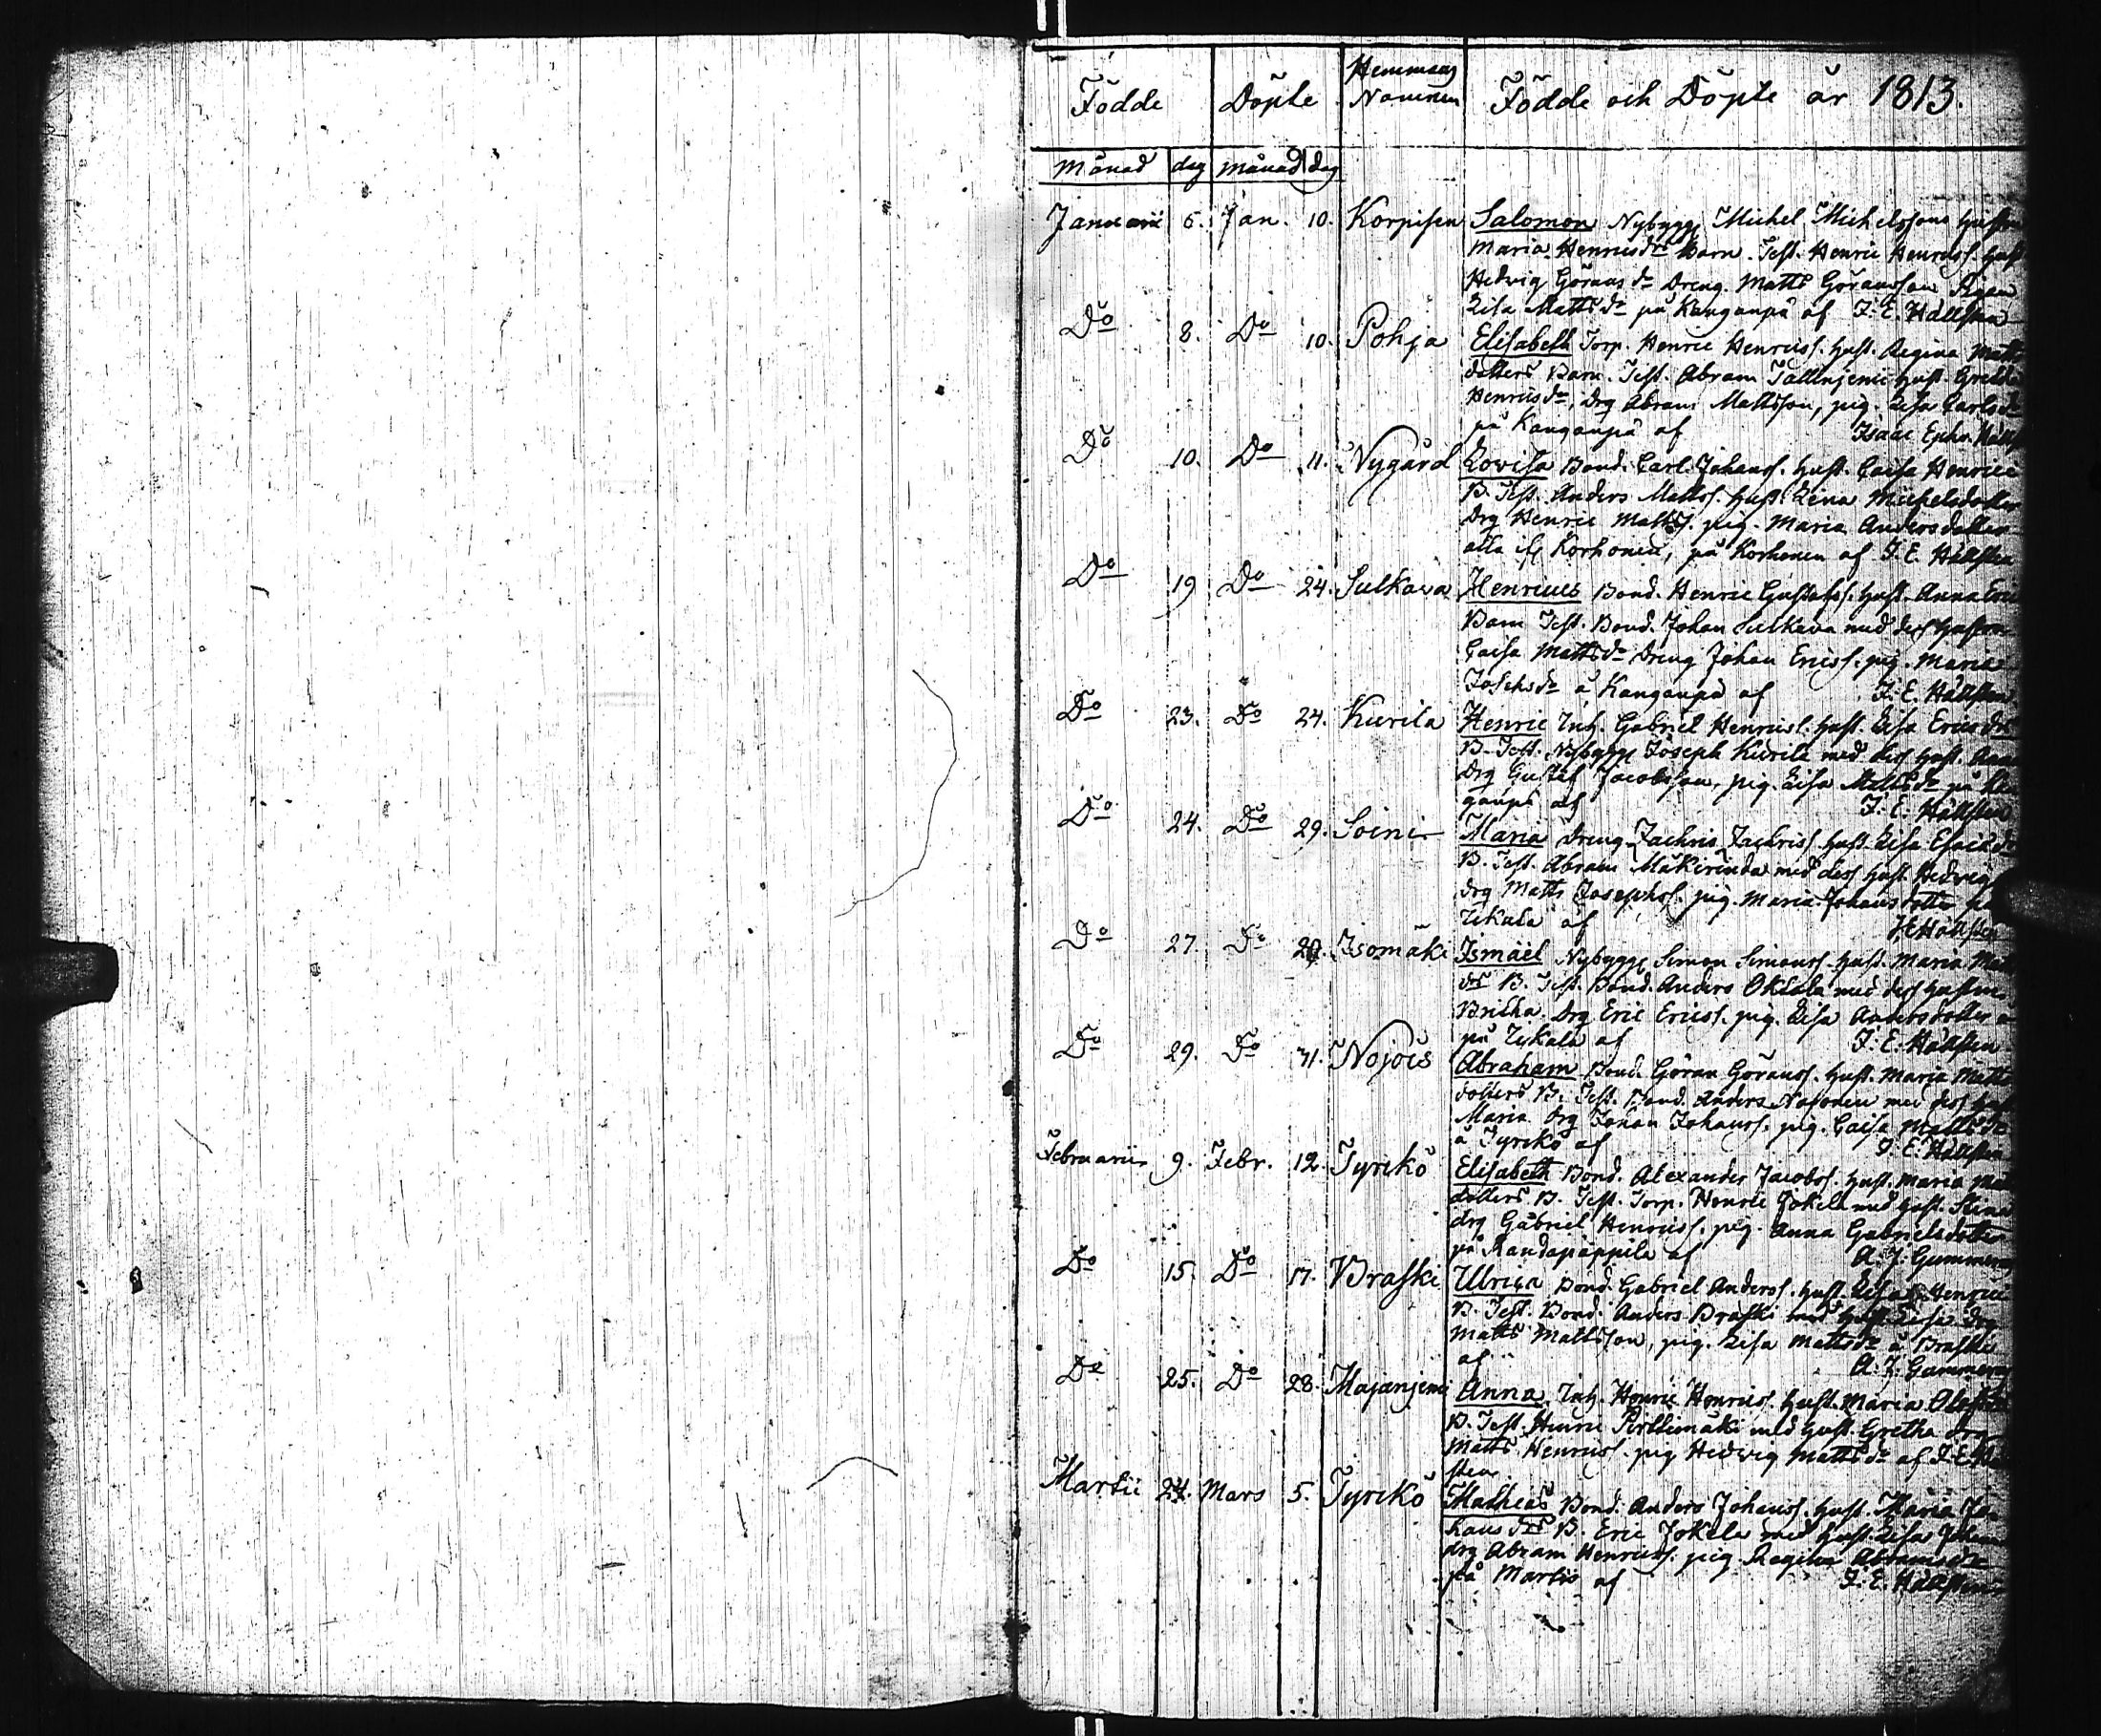 Födde Döpte Hemmans Namnen Födde och Döpte år 1813.
Månad dag månad dag
Januarii 6. Jan. 10. Korpisen Salomon Nybygg Michel Michelssons hustru
Maria Henricsdrs Barn. Test. Henric Henricss. hust
Hedvig Göransdr Dreng. Matts Göransson Pigan
Lisa Mattsdr på Kanganpä af I. E. Hällsten
Do 8. Do 10. Pohja Elisabeth Torp. Henric Henricss. hust. Regina Matts
dotters Barn. Test. Abram Tallinjemi hust. Gretha
Henricsdr, drg Abram Mattsson, pig. Lisa Carlsdr
på Kanganpä af Isaac Ephr. Hällst
Do 10. Do 11. Nygård Lovisa Bond. Carl Johanss. hust. Caisa Henrics
B. Test. Anders Mattss. hust. Lena Michelsdotter
Drg Henric Mattss. pig. Maria Andersdotter
alla ifr Korhonen, på Korhonen af I. E. Hällsten
Do 19 Do 24. Sulkava Henricus Bond. Henric Gustafss. hust. Anna Eric
Barn Test. Bond. Johan Sulkava med dess hustru
Caisa Mattsdr Dreng Johan Ericss. pig. Maria
Josephsdr å Kanganpä af I. E. Hällsten
Do 23. Do 24. Kurila Henric Inh. Gabriel Henricss. hust. Lisa Ericsdrs
B. Test. Nybygg Joseph Kurila med dess hust. Anna
Drg Gustaf Jacobsson, pig. Lisa Mattsdr på Kan
ganpä af I. E. Hällsten
Do 24. Do 29. Soini Maria Dreng Zachris Zachriss. hust. Lisa Esaiædr
B. Test. Abram Mäkirinda med dess hust. Hedvig
drg Matts Josephss. pig. Maria Johansdotter på
Zykala af I. E. Hällsten
Do 27. Do Isomäki Ismaël Nybygg Simon Simonss. hust. Maria Matts
drs B. Test. Bond. Anders Oktala med dess hustru
Britha. Drg Eric Ericss. pig. Lisa Andersdotter
på Zykala af I. E. Hällsten
Do 29. Do 31. Nojois Abraham Bond. Göran Görans. hust. Maria Matts
dotters B. Test. Bond. Anders med dess hust
Maria. Drg Johan Johanss. pig. Caisa Mattsdr
å Tyrikö af I. E. Hällsten
Februarii 9. Febr. 12. Tyrikö Elisabeth Bond. Alexander Jacobss. hust. Maria Matts
dotters B. Test. Torp. Henric Jokela med hust. Stina
drg Gabriel Henricss. pig. Anna Gabrielsdotter
på Randapäppila af A. J. Gummerus
Do 15. Do 17. Braski Ulrica Bond. Gabriel Anderss. hust. Lisa Henrics
B. Test. Bond. Anders Braski med hust. Lisa Drg
Matts Mattsson, pig. Lisa Mattsdr å Braski
af A. J. Gummerus
Do 25. Do 28. Majanjemi Anna Inh. Henric Henricss. hust. Maria
B. Test. Henric Perttimäki med hust. Gretha drg
Matts Henricss. pig Hedvig Mattsdr af I. E. Häll
sten
Martii Mars 5. Tyrikö Mathias Bond. Anders Johanss. hust. Maria Jo-
hansdrs B. Eric Jokela med hust. Lisa
drg Abram Henricss. pig. Regina Abramsdr
på Martis af I. E. Hällsten